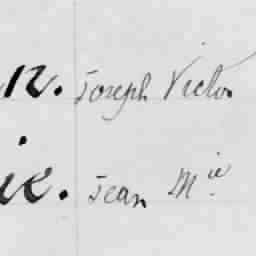 n. Joseph Victor
ie. Jean Mie